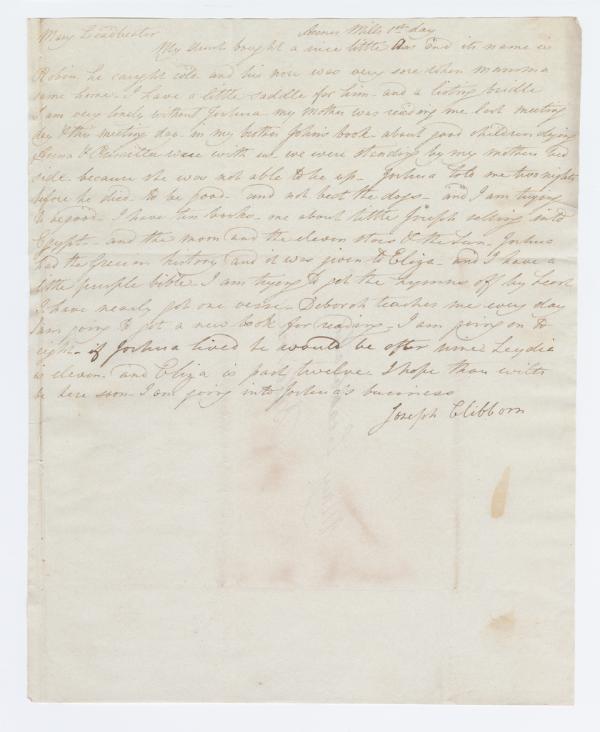 Mary Leadbeater Anner Mills 1st day
My Aunt bought a nice little Ass and its name is
Robin, he caught cold and his nose was very sore when mamma
came home. I have a little saddle for him and a listing bridle
I am very lonely without Joshua my mother was reading me last meeting
day & this meeting day in my brother John's book about good children dying
& were with us, we were standing by my mothers bed
side because she was not able to be up - Joshua told me two nights
before he died to be good - and not beat the dogs - and I am trying
to be good - I have ten books - one about little Joseph selling into
Egypt - and the moon and the eleven stars & the Sun - Joshua
had the Grecian history and it was given to Eliza - and I have a
little purple bible I am trying to get the hymns off by heart
I have nearly got one verse - Deborah teaches me every day
I am going to get a new book for reading - I am going on to
eight - if Joshua lived he would be after nine Lydia
is eleven and Eliza is past twelve I hope thou wilt
be here soon I am going into Joshua's business
Joseph Clibborn